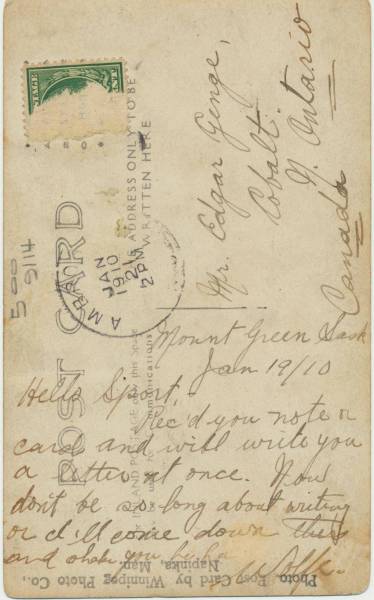 Mount Green Sask
Jan 19/10
Hello Sport,
Rec'd you note &
card and will write you
a letter at once. Now
don't be so long about writing
or I'll come down there
and shake you
Wolfe.
Mr. Edgar Genge,
Cobalt.
N. Ontario
Canada
POST CARD
THE ADDRESS ONLY TO BE
WRITTEN HERE
JAN
19 10
2 PM
500
9/14
Photo. Post Card by Winnipeg Photo Co.,
Napinka, Man.